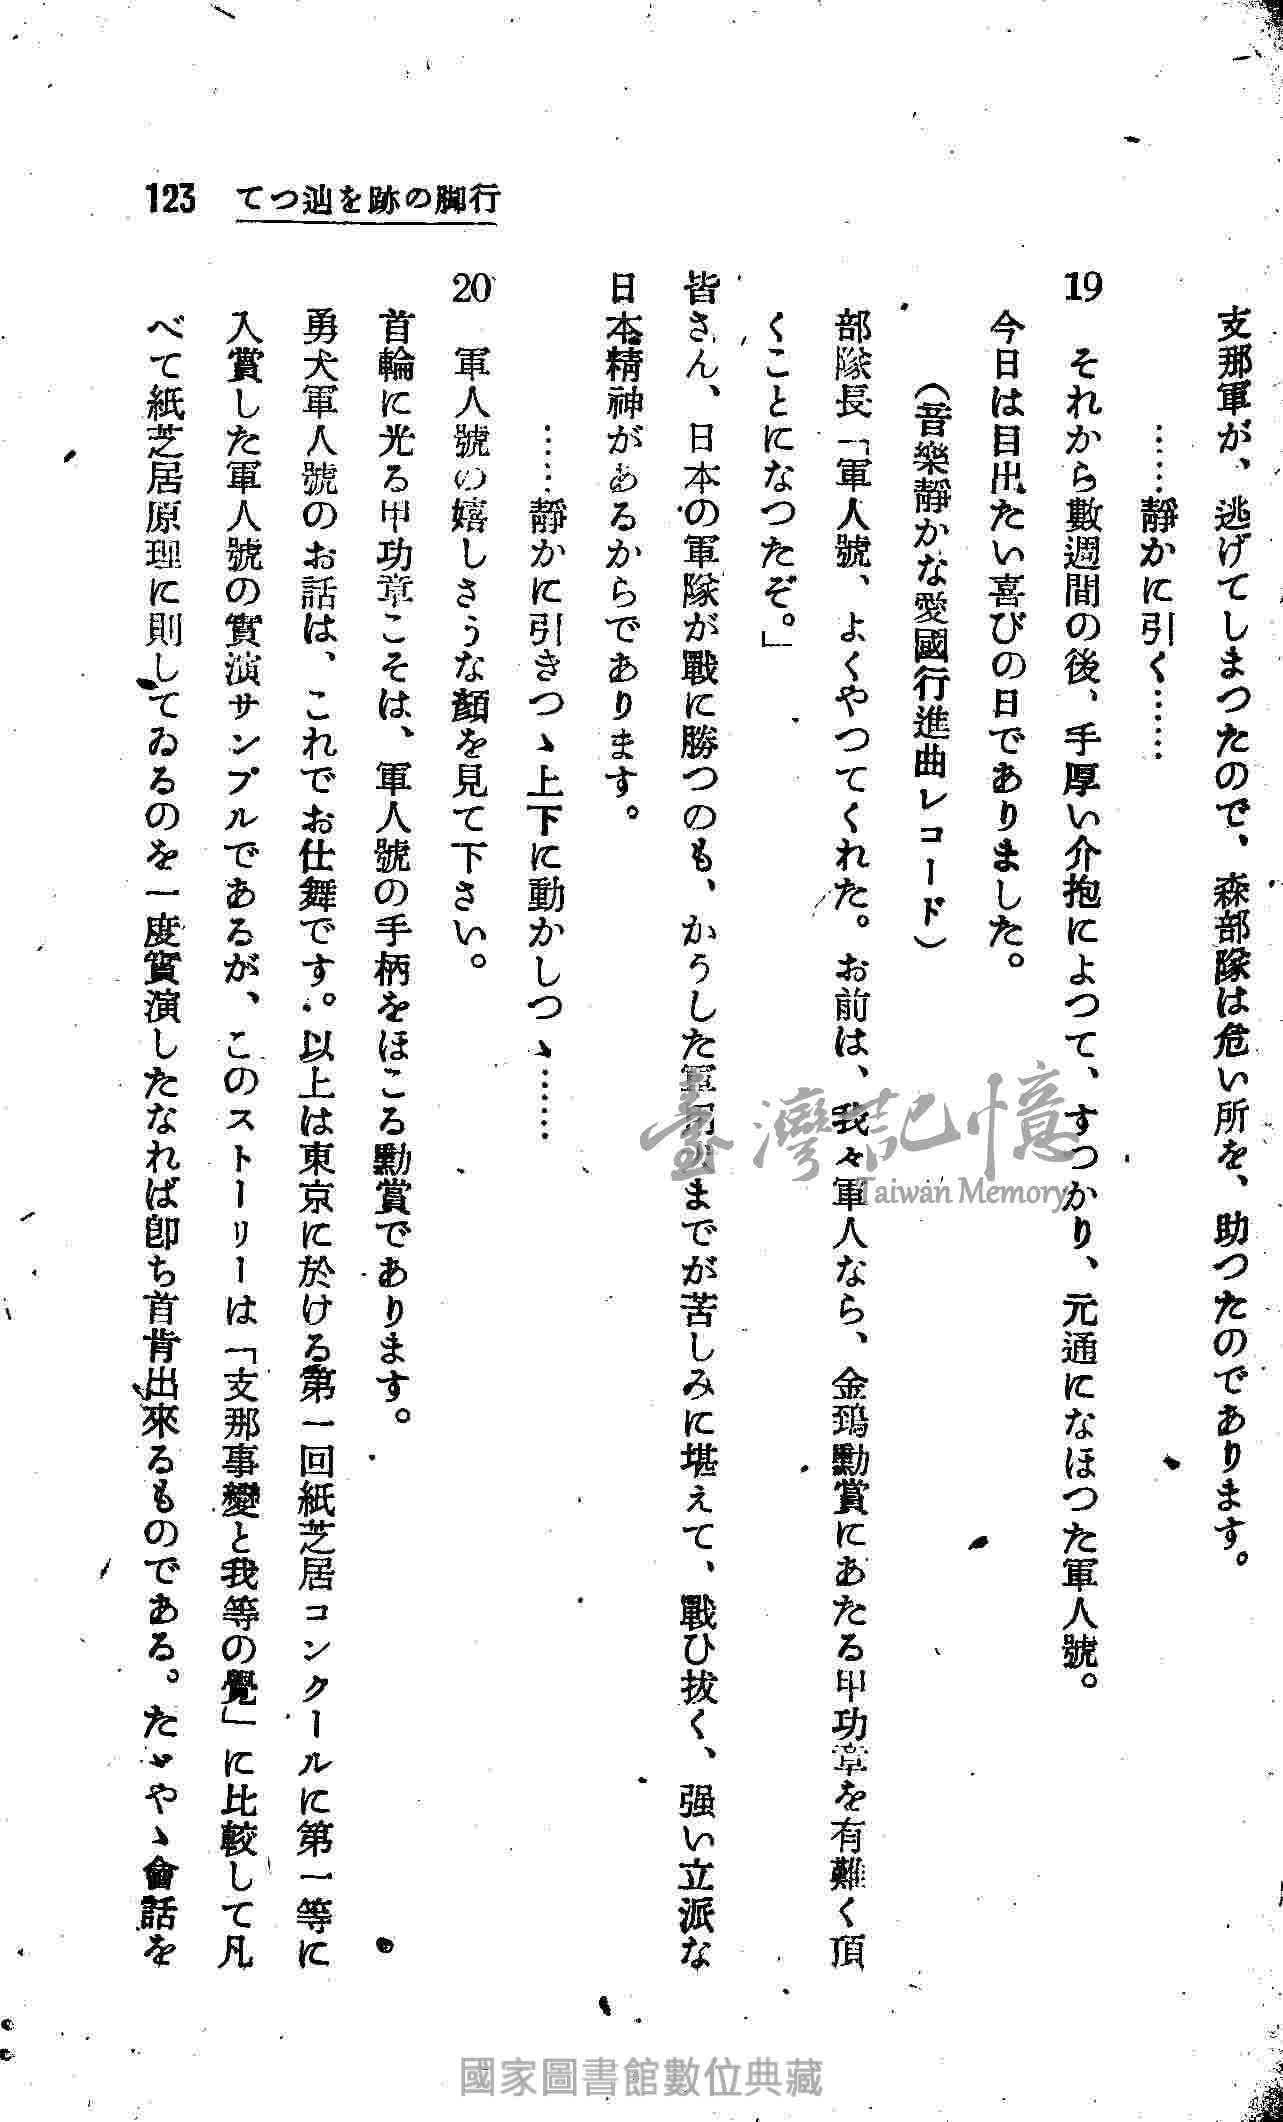 行脚の跡を辿つて 123
支那軍が、逃げてしまつたので、森部隊は危い所を、助つたのであります。
……靜かに引く……
19 それから數週間の後、手厚い介抱によつて、すつかり、元通になほつた軍人號。
今日は目出たい喜びの日でありました。
(音樂靜かな愛國行進曲レコード)
部隊長「軍人號、よくやつてくれた。お前は、我々軍人なら、金鵄勳賞にあたる甲功章を有難く頂
くことになつたぞ。」
皆さん、日本の軍隊が戰に勝つのも、かうした軍用犬までが苦しみに堪えて、戰ひ拔く、强い立派な
日本精神があるからであります。
……靜かに引きつゝ上下に動かしつゝ……
20 軍人號の嬉しさうな顏を見て下さい。
首輪に光る甲功章こそは、軍人號の手柄をほこる勳賞であります。
勇犬軍人號のお話は、これでお仕舞です。以上は東京に於ける第一回紙芝居コンクールに第一等に
入賞した軍人號の實演サンプルであるが、このストーリーは「支那事變と我等の覺」に比較して凡
べて紙芝居原理に則してゐるのを一度實演したなれば卽ち首肯出來るものである。たゞやゝ會話を
臺灣記憶
Taiwan Memory
國家圖書館數位典藏